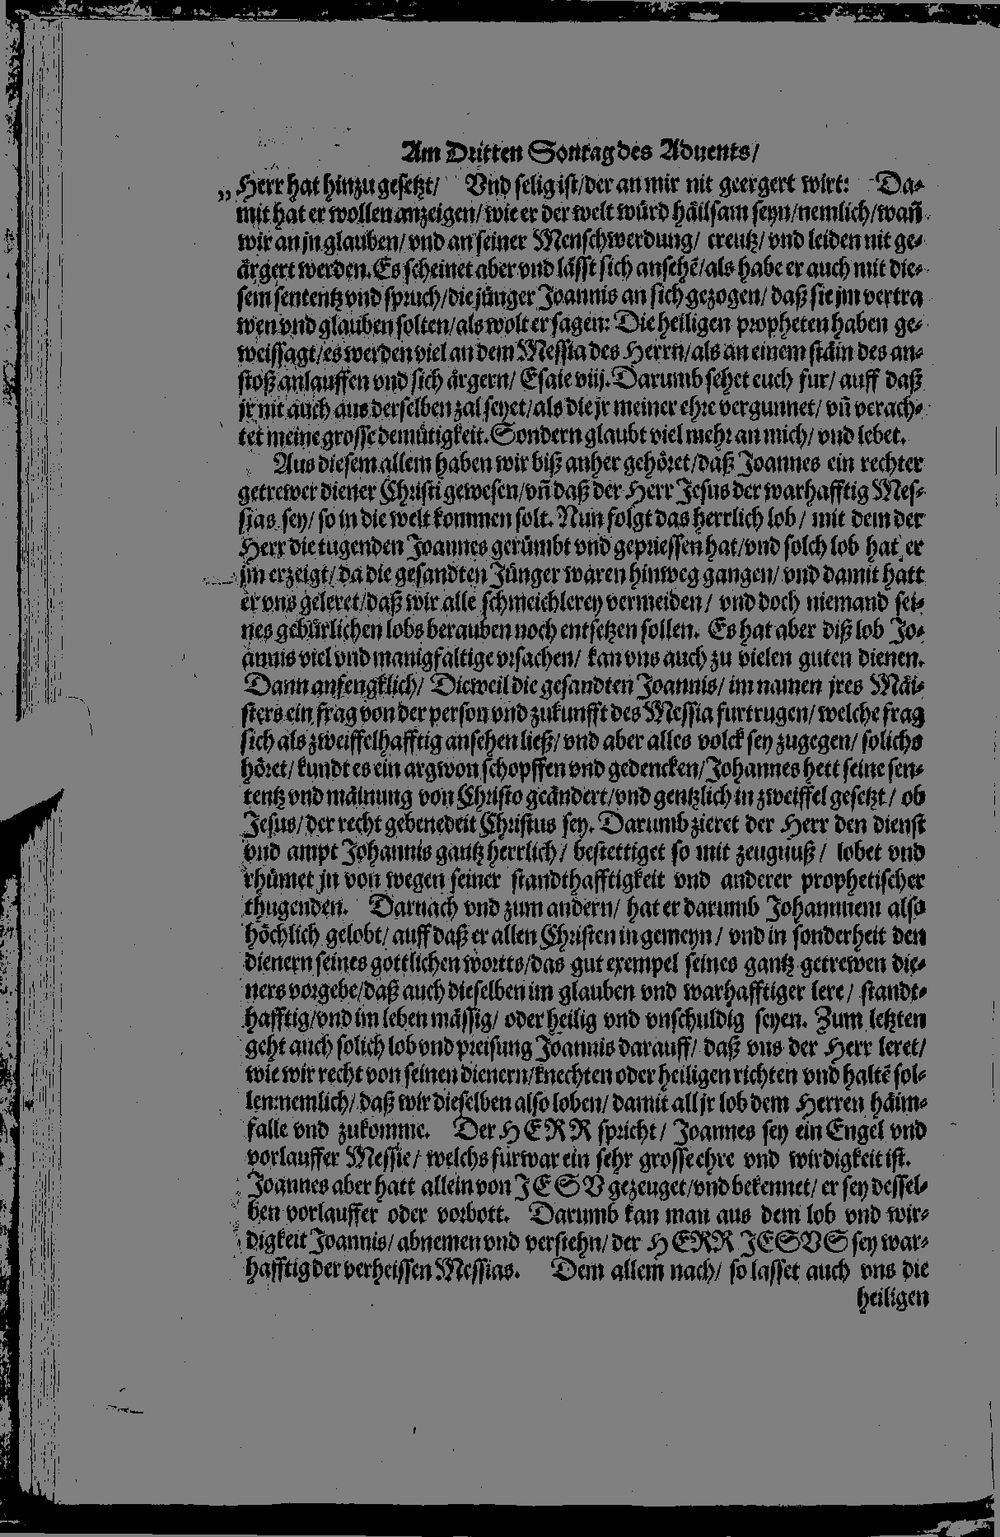 Am Dritten Sontag des Aduents/
„ Herr hat hinzu gesetzt/ Vnd selig ist/der an mir nit geergert wirt: Da-
mit hat er wollen anzeigen/wie er der welt würd häilsam seyn/nemlich/wañ
wir an jn glauben/vnd an seiner Menschwerdung/ creutz/vnd leiden nit ge-
ärgert werden. Es scheinet aber vnd lässt sich ansehẽ/als habe er auch mit die-
sem sententz vnd spruch/die jünger Joannis an sich gezogen/ daß sie jm vertra
wen vnd glauben solten/als wolt er sagen: Die heiligen propheten haben ge-
weissagt/es werden viel an dem Messia des Herrn/als an einem stäin des an-
stoß anlauffen vnd sich ärgern/ Esaie viij. Darumb sehet euch fur/ auff daß
jr nit auch aus derselben zal seyet/als die jr meiner ehre vergunnet/ vñ verach-
tet meine grosse demütigkeit. Sondern glaubt viel mehr an mich/ vnd lebet.
Aus diesem allem haben wir biß anher gehöret/daß Joannes ein rechter
getrewer diener Christi gewesen/vñ daß der Herr Jesus der warhafftig Mes-
sias sey/ so in die welt kommen solt. Nun folgt das herrlich lob/ mit dem der
Herr die tugenden Joannes gerümbt vnd gepriessen hat/vnd solch lob hat er
jm erzeigt/da die gesandten Jünger waren hinweg gangen/ vnd damit hatt
er vns geleret/daß wir alle schmeichlerey vermeiden/ vnd doch niemand sei-
nes gebürlichen lobs berauben noch entsetzen sollen. Es hat aber diß lob Jo-
annis viel vnd manigfaltige vrsachen/ kan vns auch zu vielen guten dienen.
Dann anfengklich/ Dieweil die gesandten Joannis/ im namen jres Mäi-
sters ein frag von der person vnd zukunfft des Messia furtrugen/ welche frag
sich als zweiffelhafftig ansehen ließ/ vnd aber alles volck sey zugegen/ solichs
höret/ kundt es ein argwon schopffen vnd gedencken/Johannes hett seine sen-
tentz vnd mäinung von Christo geändert/vnd gentzlich in zweiffel gesetzt/ ob
Jesus/der recht gebenedeit Christus sey. Darumb zieret der Herr den dienst
vnd ampt Johannis gantz herrlich/ bestettiget so mit zeugnuß/ lobet vnd
rhümet jn von wegen seiner standthafftigkeit vnd anderer prophetischer
thugenden. Darnach vnd zum andern/ hat er darumb Johannem also
höchlich gelobt/auff daß er allen Christen in gemeyn/ vnd in sonderheit den
dienern seines gottlichen wortts/das gut exempel seines gantz getrewen die-
ners vorgebe/daß auch dieselben im glauben vnd warhafftiger lere/ standt-
hafftig/vnd im leben mässig/ oder heilig vnd vnschuldig seyen. Zum letzten
geht auch solich lob vnd preisung Joannis darauff/ daß vns der Herr leret/
wie wir recht von seinen dienern/knechten oder heiligen richten vnd haltẽ sol-
len:nemlich/ daß wir dieselben also loben/ damit all jr lob dem Herren häim-
falle vnd zukomme. Der HERR spricht/ Joannes sey ein Engel vnd
vorlauffer Messie/ welchs fürwar ein sehr grosse ehre vnd wirdigkeit ist.
Joannes aber hatt allein von JESV gezeuget/vnd bekennet/ er sey dessel-
ben vorlauffer oder vorbott. Darumb kan man aus dem lob vnd wir-
digkeit Joannis/ abnemen vnd verstehn/der HERR JESVS sey war-
hafftig der verheissen Messias. Dem allem nach/ so lasset auch vns die
heiligen